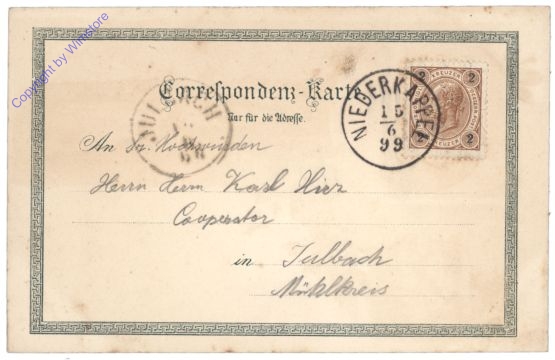 Copyright by Wimstore
Correspondenz-Karte
Nur für die Adresse.
NIEDERKAPPEL
15
6
99
2 KREUZER 2
2 KREUZER 2
JULBACH
An Sr. Hochwürden
Herrn Herrn Karl
Cooperator
in Julbach
Mühlkreis